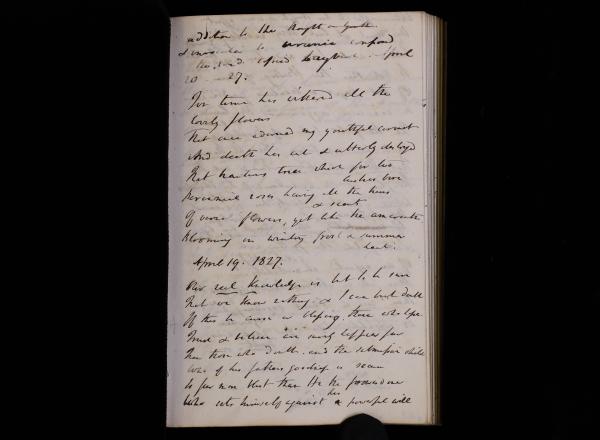 addition to the Knight or Youth
& 
April
20 27.
For time has withered all the
lovely flowers
That once adorned my youthful coronet
And death has cut & utterly destroyed
That beauteous tree which for her
bore
Perennial roses having all the hues
& scents
Of vernal flowers, yet like the amaranth
Blooming in wintry frost & summer
heat.
April 19. 1827.
Our real knowledge is but to be sure
That we know nothing. & I can but doubt
If this be curse or blessing, those who hope
Trust & believe are surely happier far
Than those who doubt. and the submissive child
Who of his fathers goodness is secure
Is far more blest than He the
Who sets himself against his powerful will